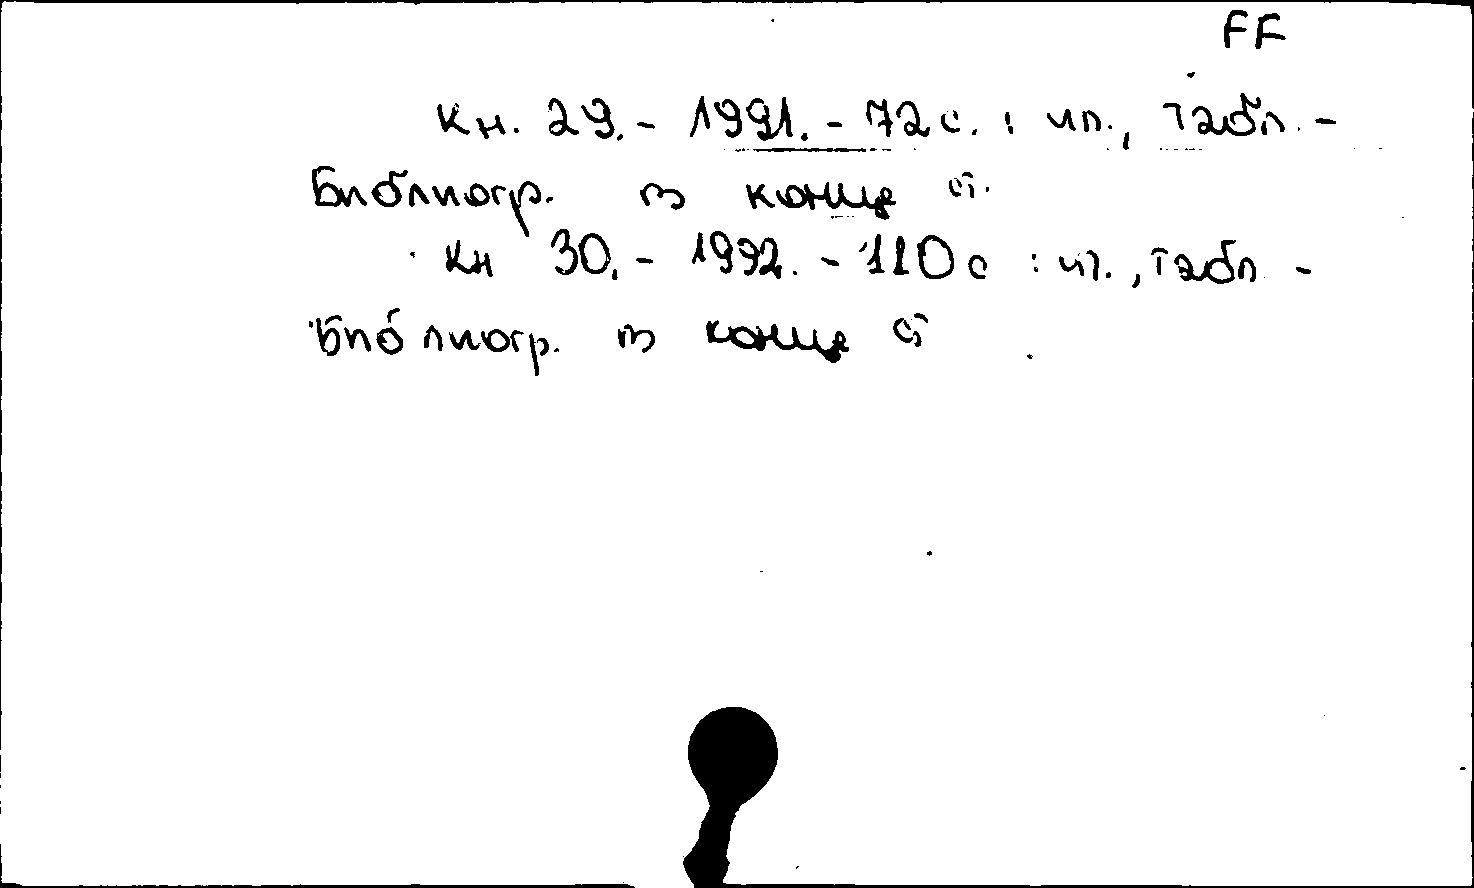 FF
Кн. 29. - 1991. - 72 с. : ил., табл. -
Библиогр. в конце ст.
Кн 30. - 1992. - 110 с : ил., табл -
Библиогр. в конце ст